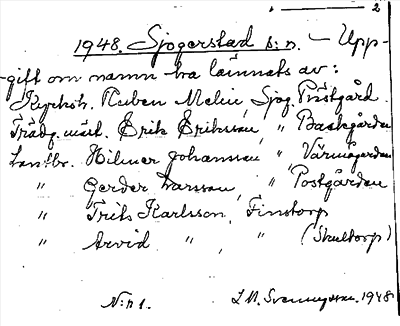 2
1948. Sjogerstad s:n. - Upp-
gift om namn ha lämnats av:
Kyrkoh. Ruben Melin, Sjog. Prästgård.
Trädg.mäst. Erik Eriksson, " Backgården
Lantbr. Hilmer Johansson, "
" Larsson, " Postgården
" Frits Karlsson, Finstorp
" Arvid " , " (Skultorp)
N:r 1. 1948